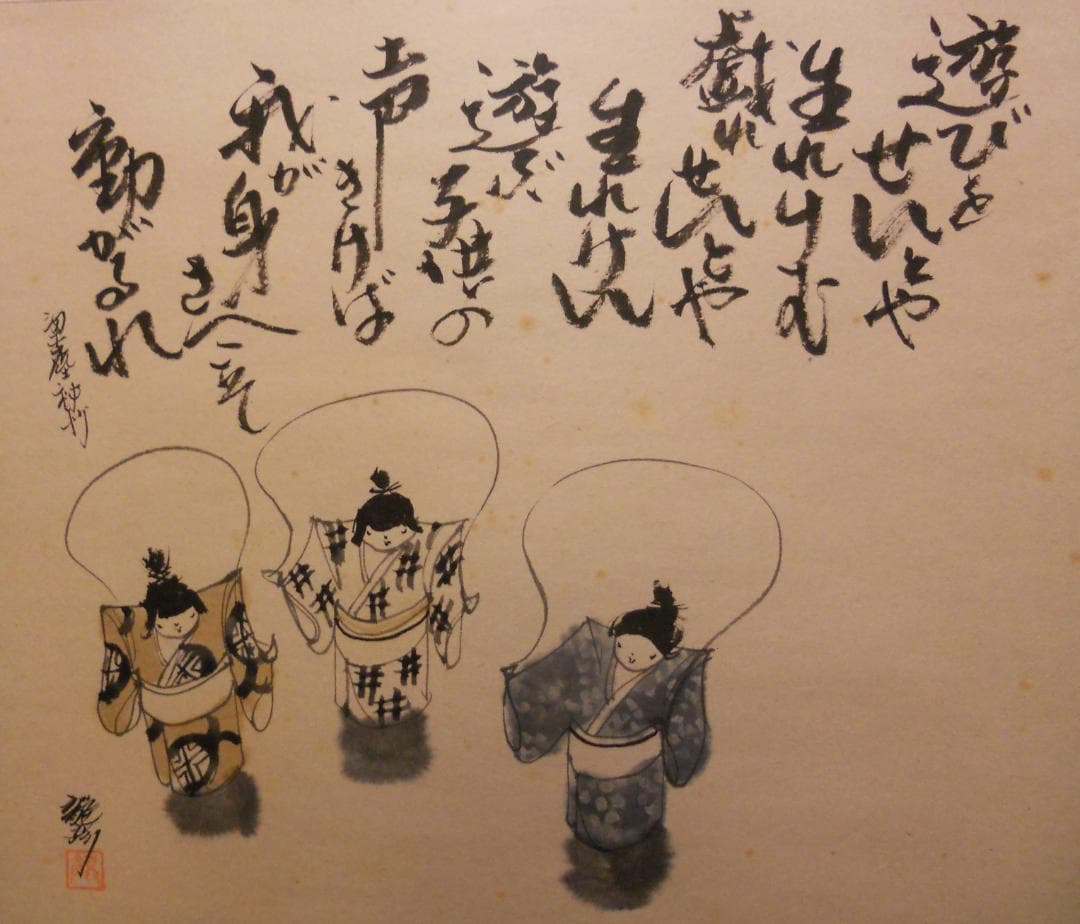 遊びを
せんとや
生れけむ
戯れ
せんとや
生れけん
遊ぶ
子供の
声
きけば
我が身
さへこそ
動がるれ
梁塵秘抄